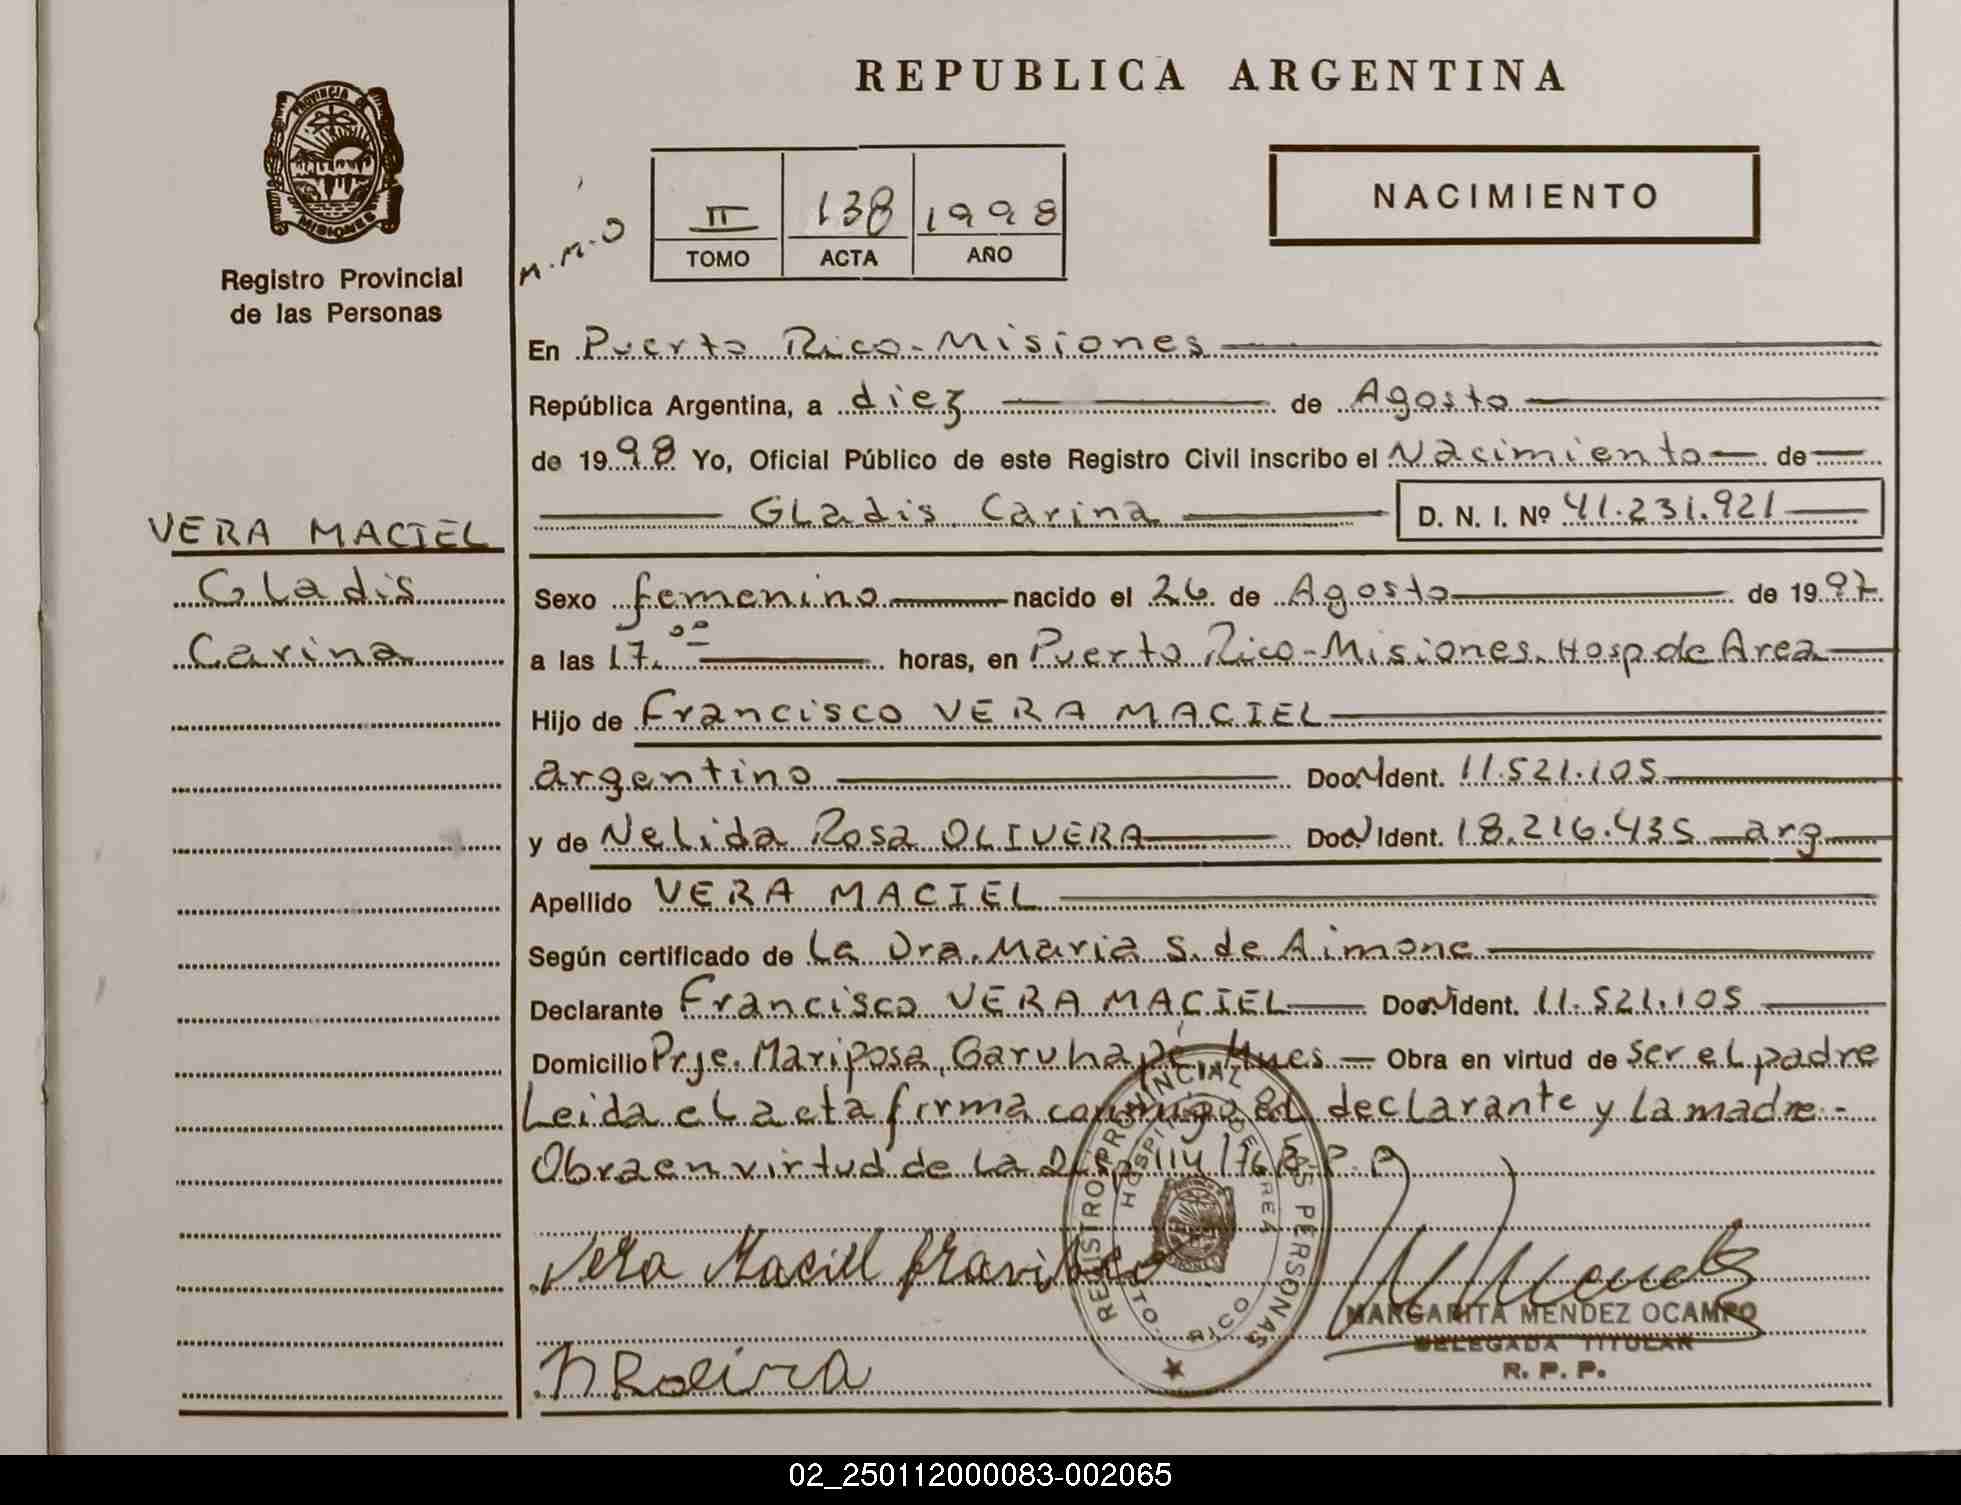 REPUBLICA ARGENTINA
PROVINCIA DE
MISIONES
Registro Provincial
de las Personas
M.M.O
II 138 1998
TOMO ACTA AÑO
NACIMIENTO
En Puerto Rico - Misiones
República Argentina, a diez de Agosto
de 1998 Yo, Oficial Público de este Registro Civil inscribo el Nacimiento de
Gladis Carina D. N. I. Nº 41.231.921
VERA MACIEL
Gladis
Carina
Sexo femenino nacido el 26 de Agosto de 1997
a las 17.00 horas, en Puerto Rico - Misiones. Hosp de Area
Hijo de Francisco VERA MACIEL
argentino Doc. N Ident. 11.521.105
y de Nelida Rosa OLIVERA Doc. N Ident. 18.216.435 arg
Apellido VERA MACIEL
Según certificado de La Dra. Maria S. de Aimone
Declarante Francisco VERA MACIEL Doc. N Ident. 11.521.105
Domicilio Prje. Mariposa, Garuhapé, Mnes. Obra en virtud de ser el padre
Leida el acta firma conmigo el declarante y la madre -
Obra en virtud de la Disp 114/76 R.P.P
REGISTRO PROVINCIAL DE LAS PERSONAS
HOSPITAL DE AREA
PTO. RICO
Vera Maciel Francisco
N R Oliveira
MARGARITA MENDEZ OCAMPO
DELEGADA TITULAR
R. P. P.
02_250112000083-002065